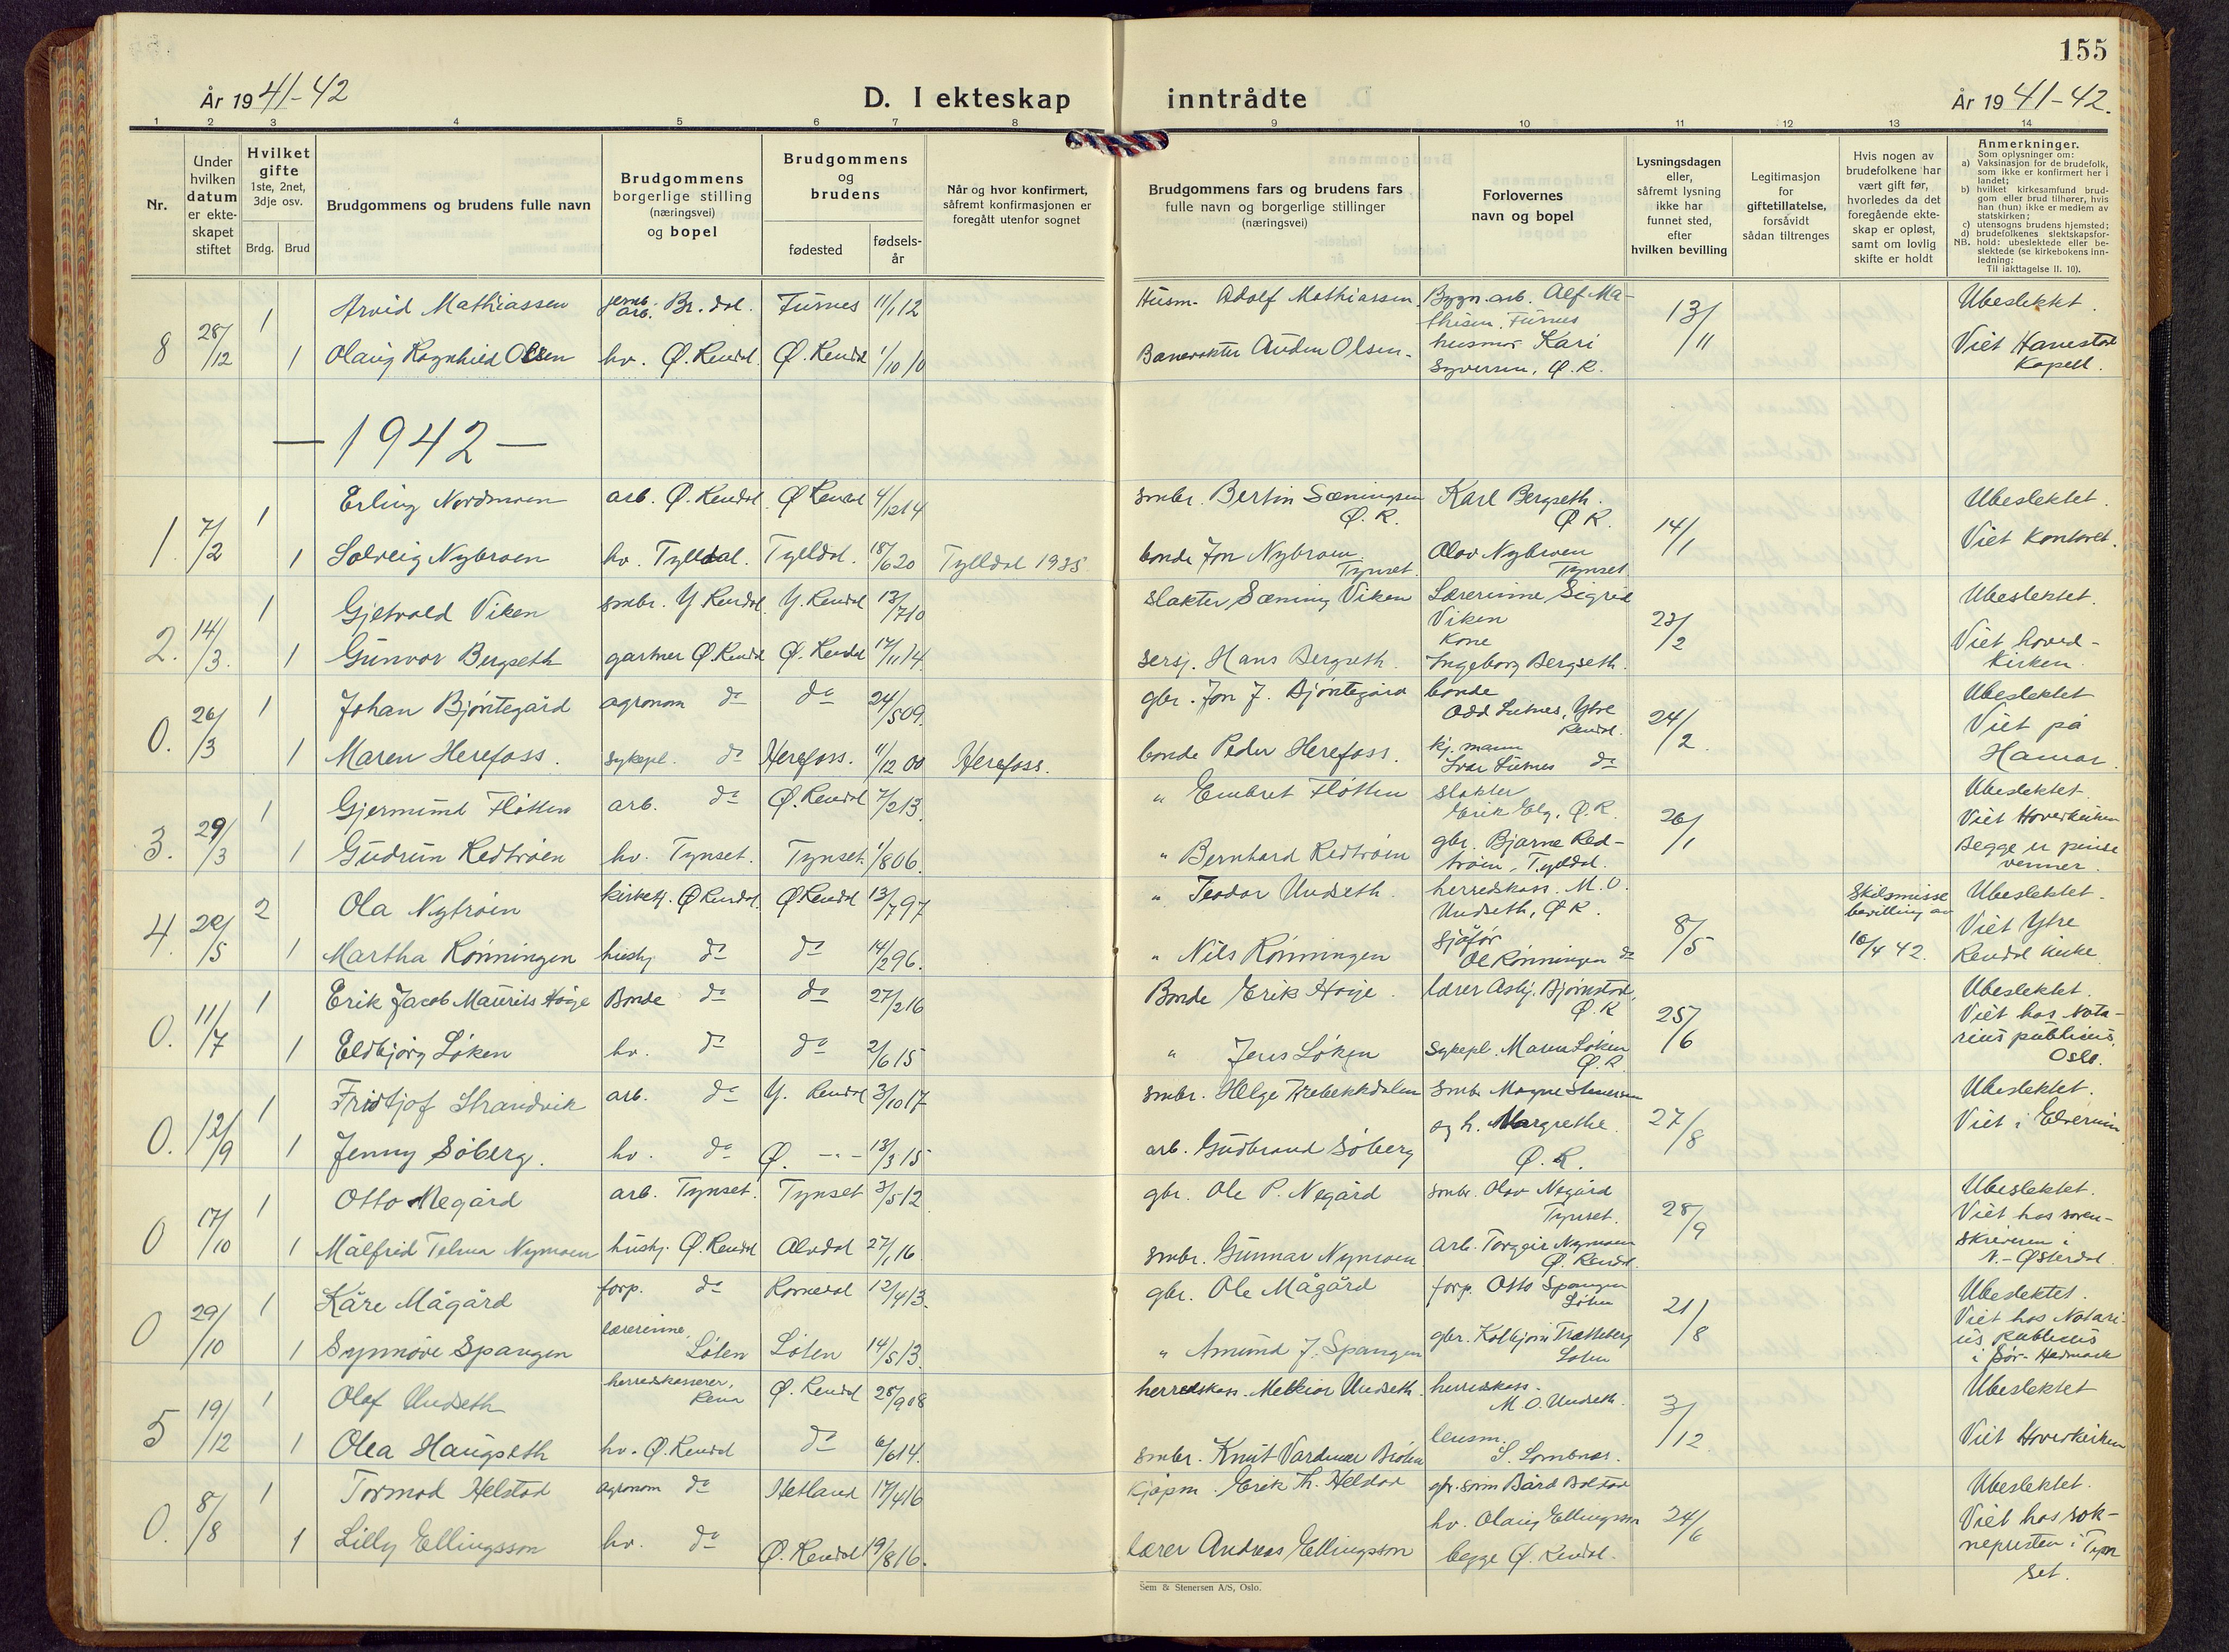 155
År 1941-42
D. I ekteskap inntrådte
År 1941-42.
1 2 3 4 5 6 7 8 9 10 11 12 13 14
Nr.
Under hvilken datum er ekteskapet stiftet
Hvilket gifte 1ste, 2net, 3dje osv.
Brdg. Brud
Brudgommens og brudens fulle navn
Brudgommens borgerlige stilling (næringsvei) og bopel
Brudgommens og brudens
fødested
fødselsår
Når og hvor konfirmert, såfremt konfirmasjonen er foregått utenfor sognet
Brudgommens fars og brudens fars fulle navn og borgerlige stillinger (næringsvei)
Forlovernes navn og bopel
Lysningsdagen eller, såfremt lysning ikke har funnet sted, efter hvilken bevilling
Legitimasjon for giftetillatelse, forsåvidt sådan tiltrenges
Hvis nogen av brudefolkene har vært gift før, hvorledes da det foregående ekteskap er opløst, samt om lovlig skifte er holdt
Anmerkninger.
Som oplysninger om:
a) Vaksinasjon for de brudefolk, som ikke er konfirmert her i landet;
b) hvilket kirkesamfund brudgom eller brud tilhører, hvis han (hun) ikke er medlem av statskirken;
c) utensogns brudens hjemsted;
d) brudefolkenes slektskapsforhold: ubeslektede eller beslektede (se kirkebokens innledning:
NB. Til iakttagelse II. 10).
8 28/12 1 Arvid Mathiassen jernb. arb. Br.dal. Furnes 11/1 12 Husm. Adolf Mathiassen. Bygn.arb. Alf Mathisen, Furnes 13/11 Ubeslektet.
1 Olaug Ragnhild Olsen hv. Ø. Rendal. Ø. Rendal 1/10 10 Banevokter Auden Olsen. husmor Kari Syversen, Ø.R. Viet Hanestad Kapell.
— 1942 —
1. 7/2 1 Erling Nordmoen arb. Ø. Rendal. Ø Rendal 4/12 14 smbr. Bertin Sæmingsen Ø.R. Karl Bergseth. Ø R. 14/1 Ubeslektet.
1 Solveig Nybroen hv. Tylldal. Tylldal. 18/6 20 Tylldal 1935 bonde Jon Nybroen. Tynset. Olav Nybroen Tynset Viet Kontoret.
2. 14/3. 1 Gjetvald Viken smbr. Y Rendal Y. Rendal 13/7 10 slakter Sæming Viken Lærerinne Sigrid Viken 23/2 Ubeslektet.
1 Gunvor Bergseth gartner Ø.Rendal Ø. Rendal 17/11 14. sersj. Hans Bergseth. Kone Ingeborg Bergseth. Viet hovedkirken.
0. 26/3 1 Johan Bjøntegård agronom do do 24/5 09. gbr. Jon J. Bjøntegård bonde Odd Lutnes, Ytre Rendal. 24/2. Ubeslektet
1 Maren Herefoss. sykepl. do Herefoss. 11/12 00 Herefoss. bonde Peder Herefoss. kj.mann Ivar Lutnes do Viet på Hamar.
3. 29/3 1 Gjermund Fløtten arb. do Ø. Rendal 7/2 13. " Embret Fløtten slakter Erik Elg, Ø.R. 26/1 Ubeslektet.
1 Gudrun Redtrøen hv. Tynset. Tynset. 1/8 06. " Bernhard Redtrøen gbr. Bjarne Redtrøen, Tylldal. Viet Hovedkirken Begge er pinsevenner.
4. 20/5 2 Ola Nytrøen kirketj. Ø Rendal. Ø Rendal 13/7 97 " Teodor Undseth. herredskass. M.O. Undseth, Ø R. 8/5 Skilsmisse bevilling av 10/4 42. Ubeslektet.
1 Martha Rønningen hushj do do 14/2 96. " Nils Rønningen sjåfør Ole Rønningen do Viet Ytre Rendal kirke
0. 11/7 1 Erik Jacob Maurits Høye Bonde do do 27/2 16 Bonde Erik Høye. lærer Asbj. Bjørnstad, Ø.R 25/6 Ubeslektet.
1 Eldbjørg Løken hv. do do 2/6 15 " Jens Løken sykepl. Maren Løken Ø.R. Viet hos Notarius publicus, Oslo.
0. 12/9 1 Fridtjof Strandvik arb. do Y. Rendal 3/10 17 smbr. Helge Trebekkdalen smbr Magne Stenersen 27/8 Ubeslektet.
1 Jenny Søberg. hv. do Ø. -"- 13/3 15 arb. Gudbrand Søberg og h. Margrethe. Ø. R. Viet i Elverum
0 17/10 1 Otto Negård arb. Tynset. Tynset 3/5 12 gbr. Ole P. Negård smbr. Olav Negård Tynset. 28/9 Ubeslektet.
1 Målfrid Telma Nymoen hushj. Ø.Rendal Alvdal 27/1 16 smbr. Gunnar Nymoen Arb. Torgeir Nymoen Ø. Rendal. Viet hos sorenskriveren i N.-Østerdal.
0 29/10 1 Kåre Mågård forp. do Romedal 12/4 13. gbr. Ole Mågård forp. Otto Spangen Løten 21/8 Ubeslektet.
1 Synnøve Spangen lærerinne, Løten Løten 14/5 13. " Amund J. Spangen gbr. Kolbjørn Trætteberg Løten Viet hos Notarius Publicus i Sør-Hedmark
5 19/12 1 Olaf Undseth herredskasserer, Rena Ø. Rendal 28/9 08 herredskass. Melkior Undseth. herredskass. M.O. Undseth. 3/12 Ubeslektet
1 Olea Haugseth hv. Ø.Rendal do 6/6 14. smbr. Knut Vardmoe Brøten lensm. S. Lombnæs. Viet Hovedkirken
0. 8/8 1 Tormod Helstad agronom do Hetland 17/4 16 kjøpm. Erik Th. Helstad gbr.sønn Bård Bolstad 24/6 Ubeslektet.
1 Lilly Ellingsson hv. do Ø. Rendal 19/8 16. Lærer Andreas Ellingsson hv. Olaug Ellingsson begge Ø. Rendal. Viet hos sokneprosten i Tynset.
Sem & Stenersen A/S, Oslo.